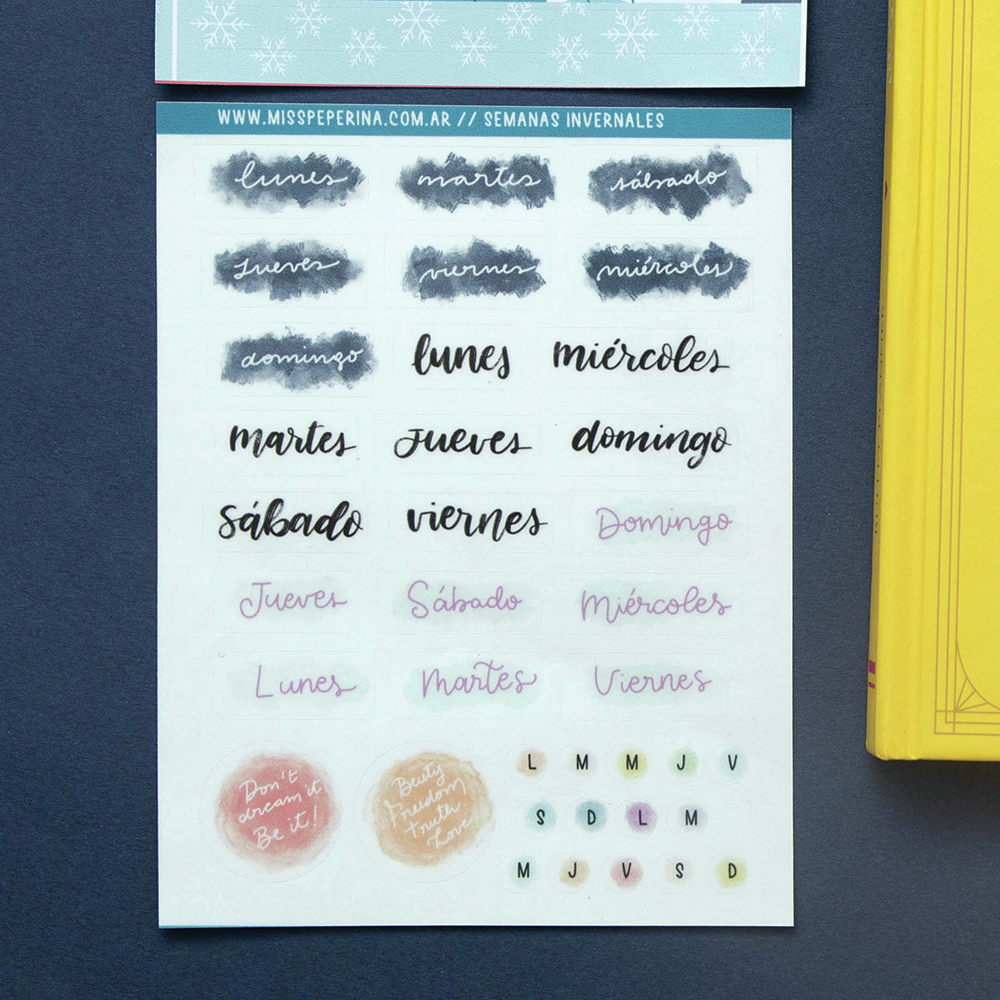 WWW.MISSPEPERINA.COM.AR // SEMANAS INVERNALES
lunes martes sábado
Jueves viernes miércoles
domingo lunes miércoles
martes Jueves domingo
Sábado viernes Domingo
Jueves Sábado Miércoles
Lunes Martes Viernes
Don't
dream it
Be it!
Beuty
Freedom
truth
Love
L M M J V
S D L M
M J V S D